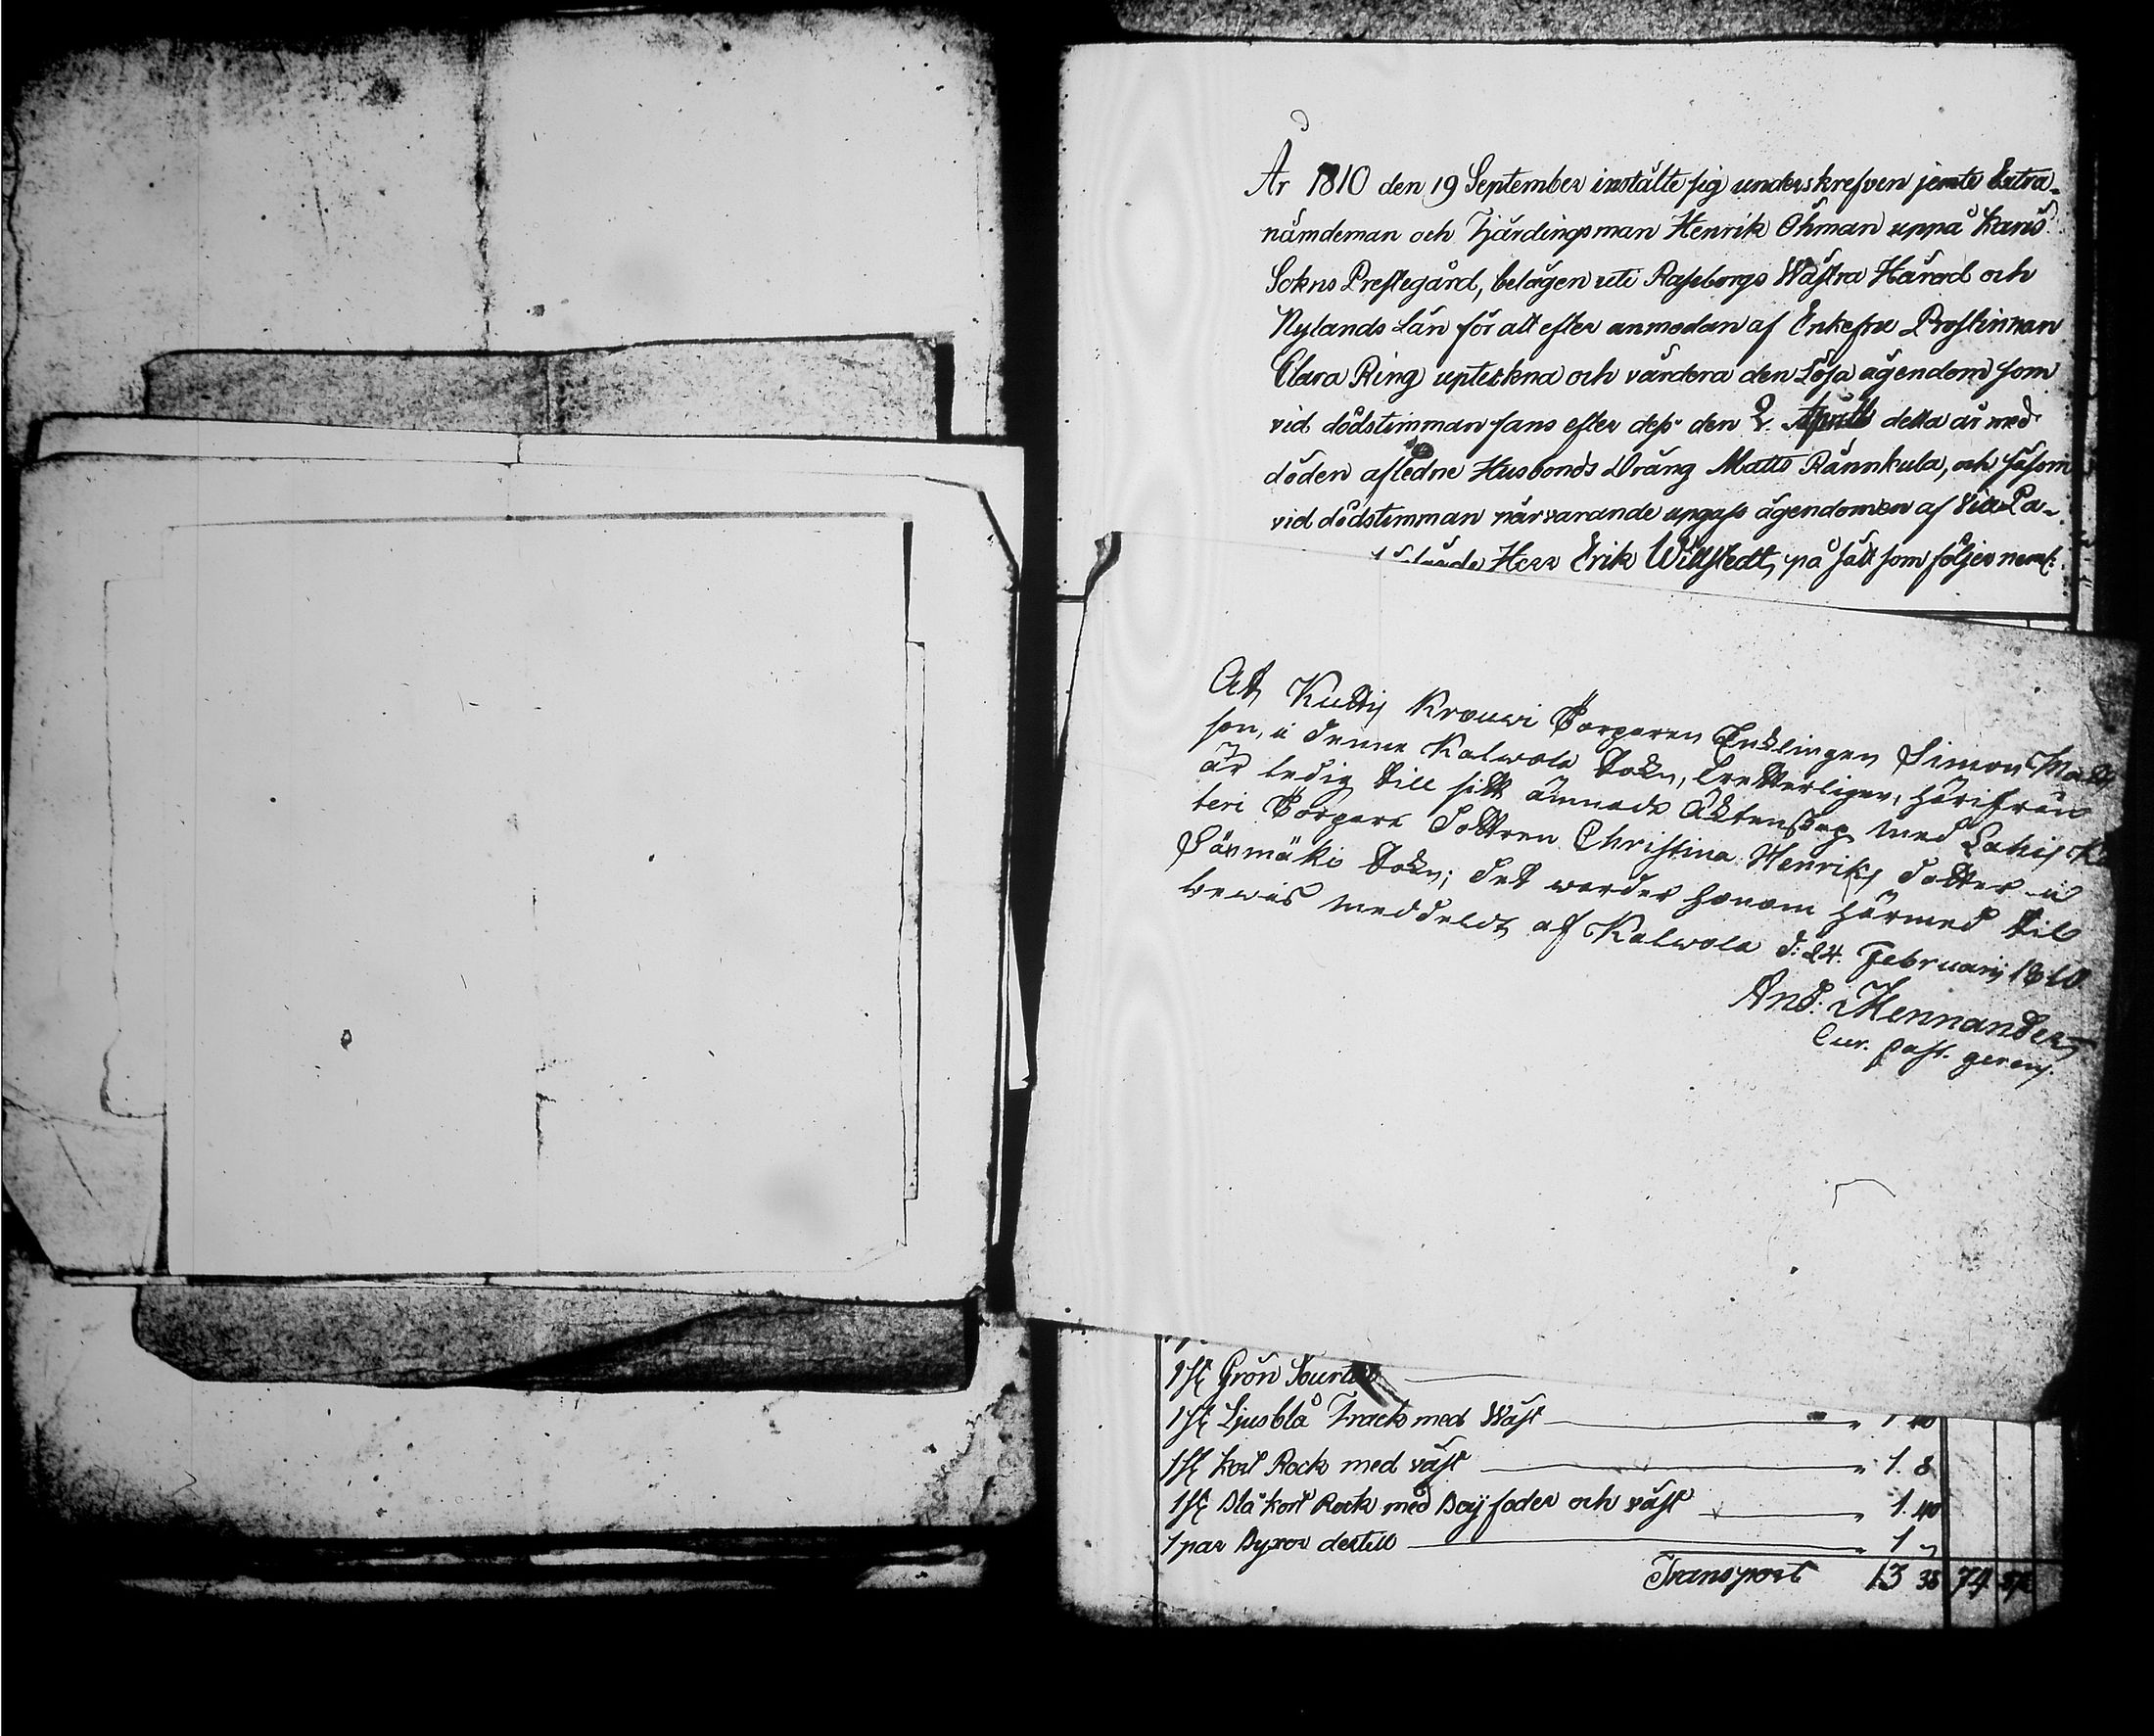 År 1810 den 19 September instälte sig underskrefven jemte Extra-
nämdeman och Fjärdingsman Henrik Öhman uppå Karis
Sokns Prestegård, belägen uti Raseborgs Wästra Härad och
Nylands Län för att efter anmodan af Enkefru Prostinnan
Clara Ring upteckna och värdera den Lösa ägendom som
vid dödstimman fans efter dess den 2 Aprill detta år med
döden afledne Husbonds Dräng Matts Rännkula, och såsom
vid dödstimman närvarande upgafs ägendomen af Vice Pa-
Herr Erik Willstedt, på sätt som följer neml:
At Kutis Krouwi Torparen Enklingen Simon Matts
son, i denne Kalwola Sokn, är härifrån
är ledig till sitt ämnade Äktenskap med Lahis
teri Torpare Dottren Christina Henriks dotter i
Säxmäki Sokn; det warder honom härmed till
bewis meddeldt af Kalwola d: 24. Februarij 1810
And: Mennander
Cur. past. gerens.
1 st Grön Sourtout
1 st Ljusblå Frack med Wäst " 1 40
1 st kort Rock med väst " 1. 8
1 st Blå kort Rock med Boy foder och väst " 1. 40
1 par Byxor dertill " 1 "
Transport 13 38 74